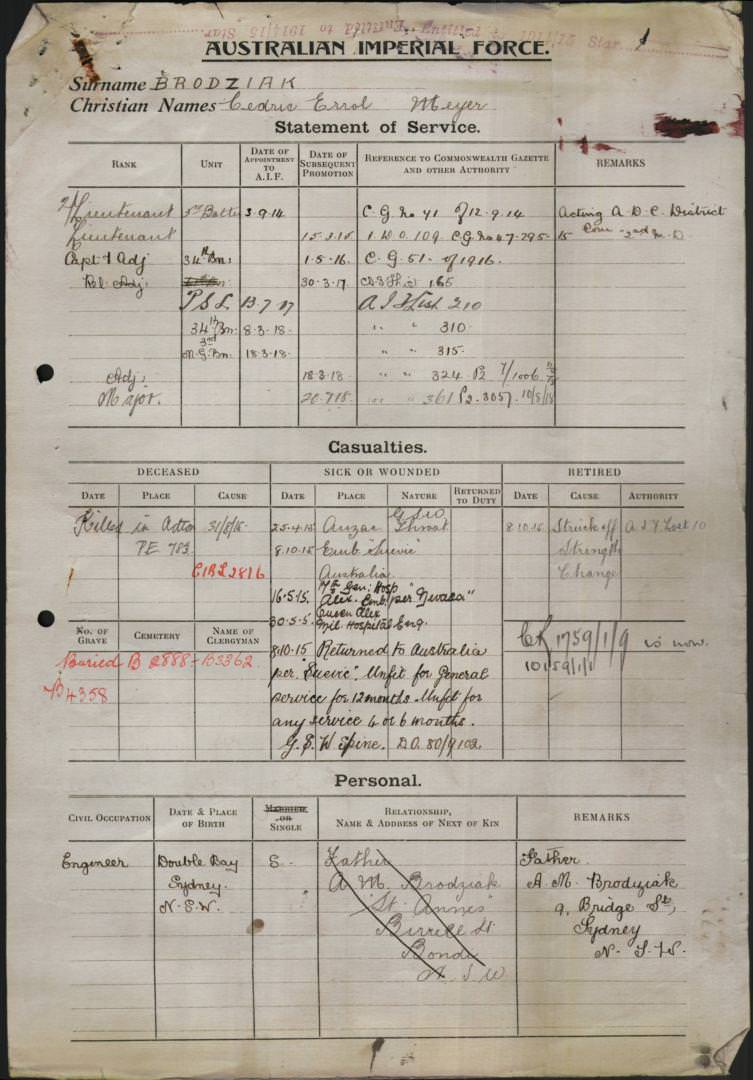 Entitled to 1914/15 Star
AUSTRALIAN IMPERIAL FORCE.
Surname BRODZIAK
Christian Names Cedric Errol Meyer
Statement of Service.
RANK UNIT DATE OF APPOINTMENT TO A.I.F. DATE OF SUBSEQUENT PROMOTION REFERENCE TO COMMONWEALTH GAZETTE AND OTHER AUTHORITY REMARKS
2/Lieutenant 3rd Battn 3.9.14 C.G. No 41 of 12.9.14 Acting A.D.C. District
Lieutenant C.G. No 47.295 Com 2nd M.D
Capt & Adj 34th Bn: 1.5.16. C.G. 51. of 1916.
Adj: 30.3.17. 165
P.S.L. 13.7.17 A.I.F List 210
34th Bn 8.3.18. " " 310.
3rd
M.G. Bn. 18.3.18. " " 315.
Adj: 18.3.18 " " 324 P2 7/1006
Major. 20.7.18. " " 361 P2.3057. 10/8/18
Casualties.
DECEASED SICK OR WOUNDED RETIRED
DATE PLACE CAUSE DATE PLACE NATURE RETURNED TO DUTY DATE CAUSE AUTHORITY
Killed in Action 31/8/18 25.4.15 Anzac Throat 8.10.15 Struck off A.I.F List 10
P.E 783 8.10.15 Emb "Suevic" Strength
Australia Change
C.I.B.L 2816 Gen: Hosp
16.5.15. Alex. Emb. per "Nevasa"
Queen Alex
30.5.15. Mil. Hospital Eng.
No. OF GRAVE CEMETERY NAME OF CLERGYMAN
CR 1759/1/9 is now.
10159/1/1
Buried B 2888 - B3362 8.10.15 Returned to Australia
B4358 per "Suevic". Unfit for General
service for 12 months. Unfit for
any service 4 or 6 months.
G.S.W. Spine. D.O. 80/9102
Personal.
CIVIL OCCUPATION DATE & PLACE OF BIRTH MARRIED OR SINGLE RELATIONSHIP, NAME & ADDRESS OF NEXT OF KIN REMARKS
Engineer Double Bay S. Father Father.
Sydney. A. M. Brodziak A. M. Brodziak
N.S.W. "St Annes" 9, Bridge St,
Birrell St Sydney
Bondi N.S.W.
N S W